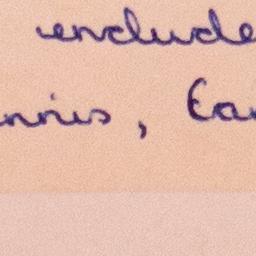 include
nnis, Ea